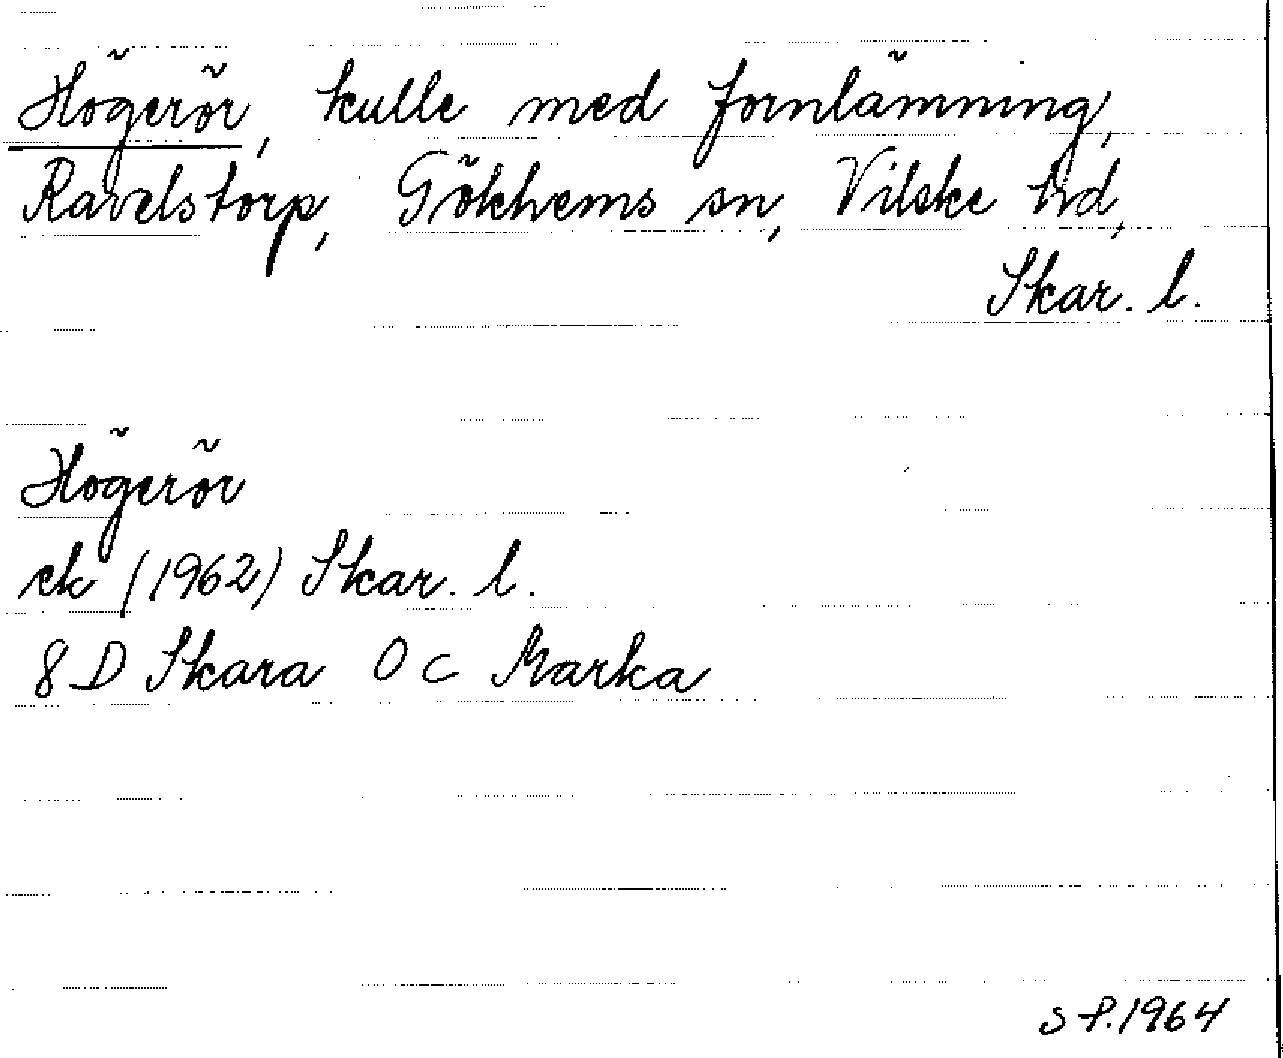 Högerör, kulle med fornlämning,
Ravelstorp, Gökhems sn, Vilske hd,
Skar. l.
Högerör
ek (1962) Skar. l.
8 D Skara 0 c Marka
S P. 1964